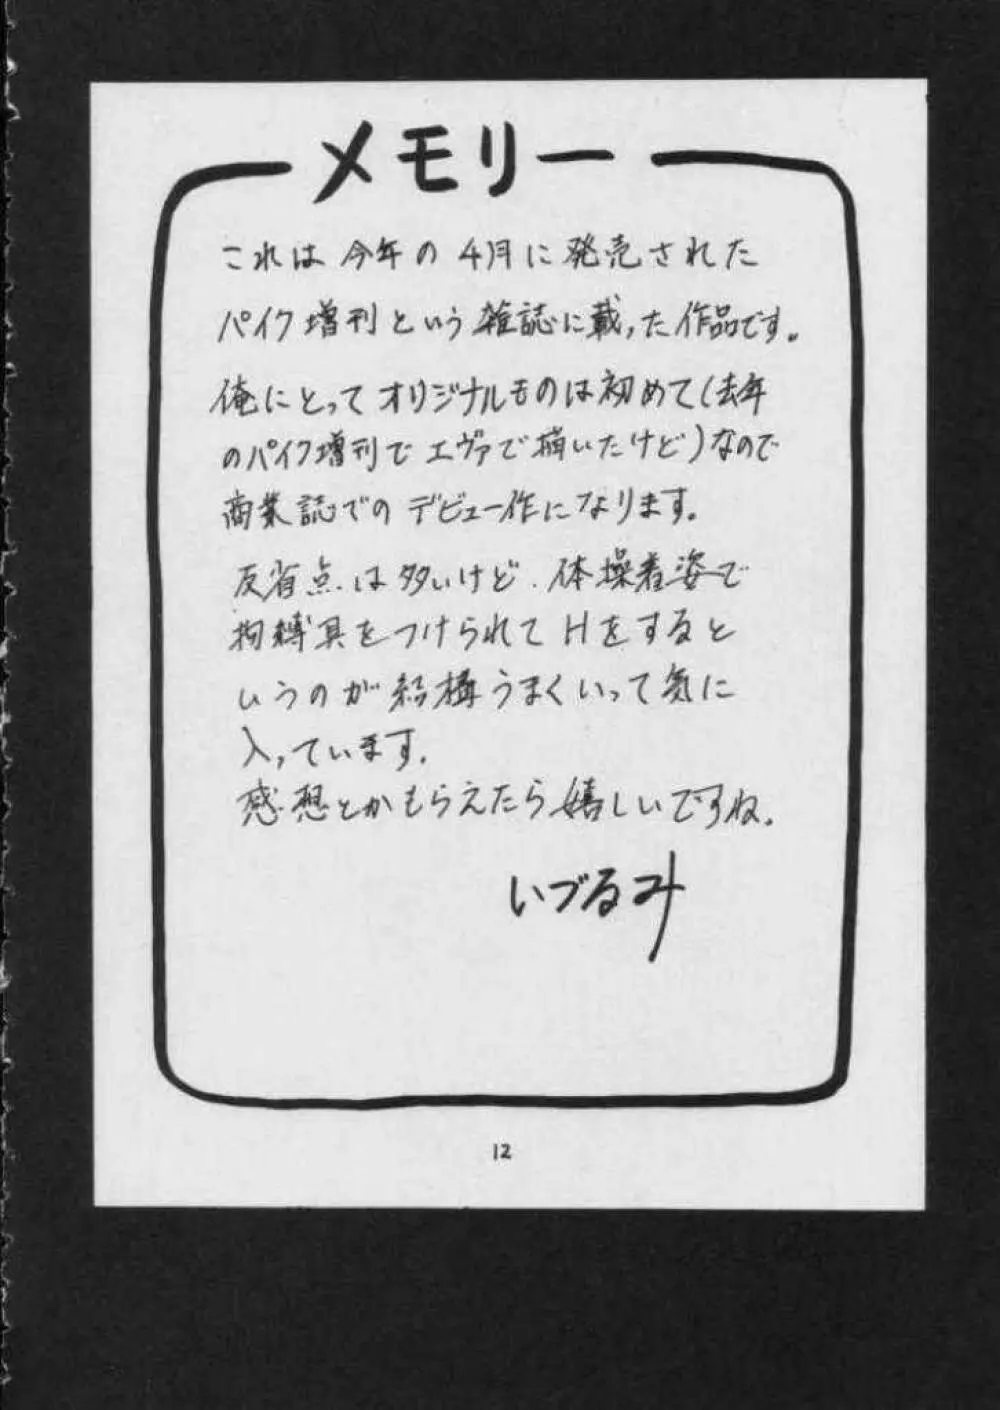 メモリー
これは今年の4月に発売された
パイク増刊という雑誌に載った作品です。
俺にとってオリジナルものは初めて(去年
のパイク増刊でエヴァで描いたけど)なので
商業誌でのデビュー作になります。
反省点は多いけど、体操着姿で
拘縛具をつけられてHをすると
いうのが結構うまくいって気に
入っています。
感想とかもらえたら嬉しいですね。
いづるみ
12